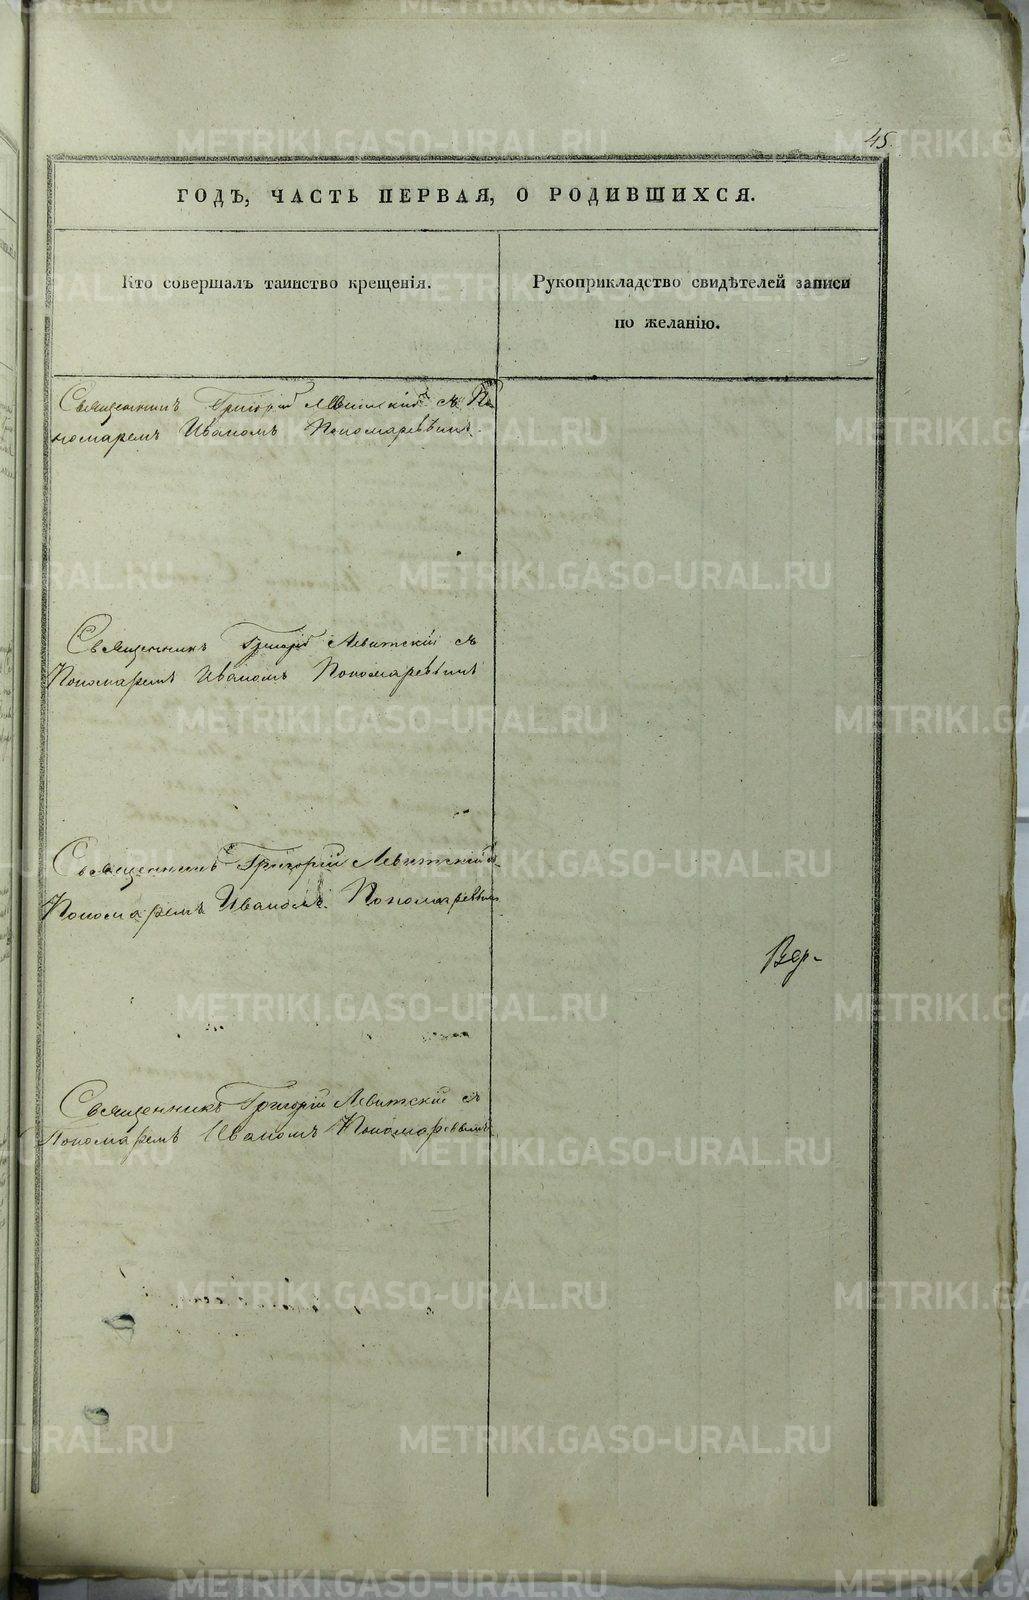 45.
ГОДЪ, ЧАСТЬ ПЕРВАЯ, О РОДИВШИХСЯ.
Кто совершалъ таинство крещенія.
Рукоприкладство свидѣтелей записи
по желанію.
Священникъ Григорій Левитскій съ По
номаремъ Иваномъ Пономаревымъ.
Священникъ Григорій Левитскій съ
Пономаремъ Иваномъ Пономаревымъ
Священникъ Григорій Левитскій съ
Пономаремъ Иваномъ Пономаревымъ
Вер-
Священникъ Григорій Левитскій съ
Пономаремъ Иваномъ Пономаревымъ
METRIKI.GASO-URAL.RU